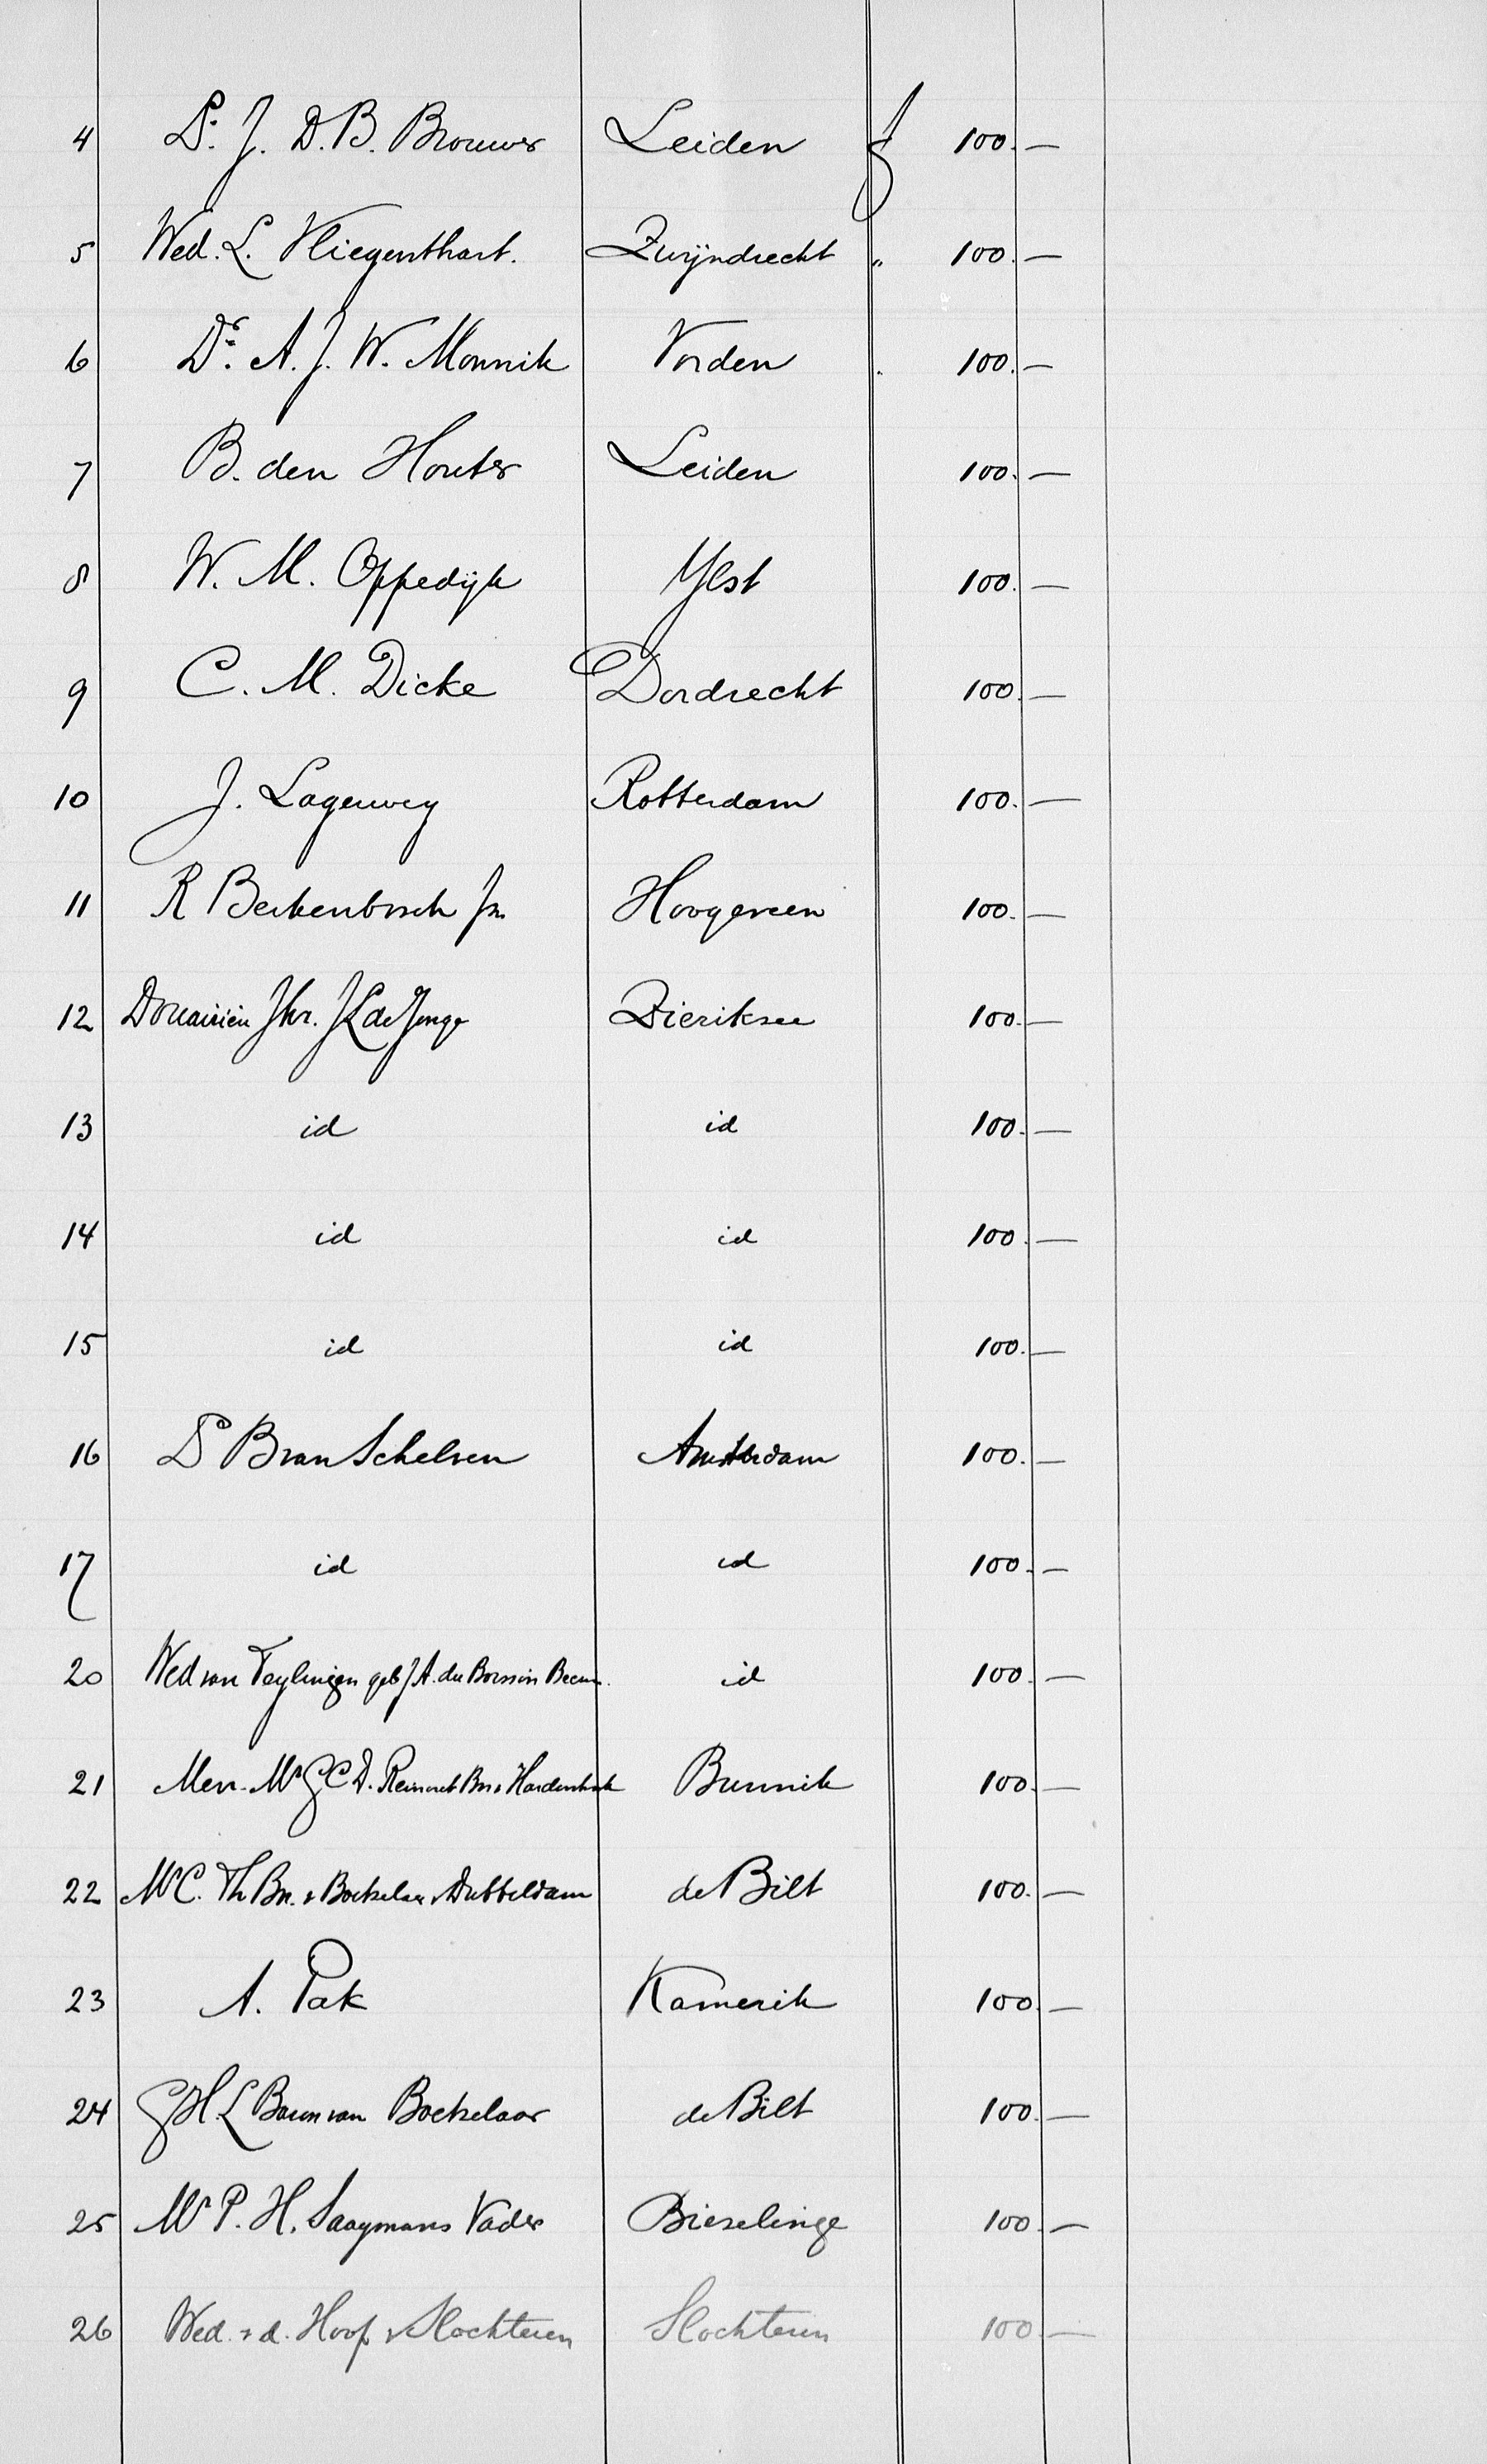 4 Ds. J. D. B. Brouwer Leiden ƒ 100.—
5 Wed. L. Vliegenthart. Zwijndrecht " 100.—
6 Dr. A. J. W. Monnik Vorden " 100.—
7 B. den Houter Leiden 100.—
8 W. M. Oppedijk Ylst 100.—
9 C. M. Dicke Dordrecht 100.—
10 J. Lagerwey Rotterdam 100.—
11 R Berkenbosch Jzn. Hoogeveen 100.—
12 Douairière Jhr. J L de Jonge Zieriksee 100.—
13 id id 100.—
14 id id 100.—
15 id id 100.—
16 Ds B van Schelven Amsterdam 100.—
17 id id 100.—
20 Wed van Teylingen geb J A. du id 100.—
21 Mevr. Mr G C D. Bn v Hardenbroek Bunnik 100.—
22 Mr C. Th Bn. v Boetzelaer v Dubbeldam de Bilt 100.—
23 A. Pak Kamerik 100.—
24 G H. L Baron van Boetzelaar de Bilt 100.—
25 Mr P. H. Saaymans Vader Biezelinge 100.—
26 Wed. v d. Hoop v Slochteren Slochteren 100.—